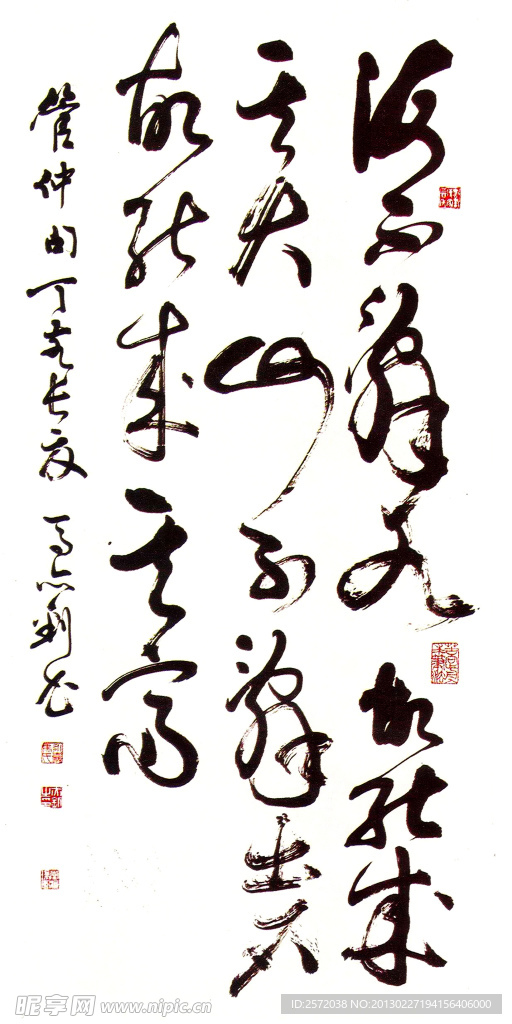 海不辭水故能成
其大山不辭土石
故能成其高
管仲句丁亥長夏馬亦釗書
昵享网 www.nipic.cn
ID:2572038 NO:20130227194156406000